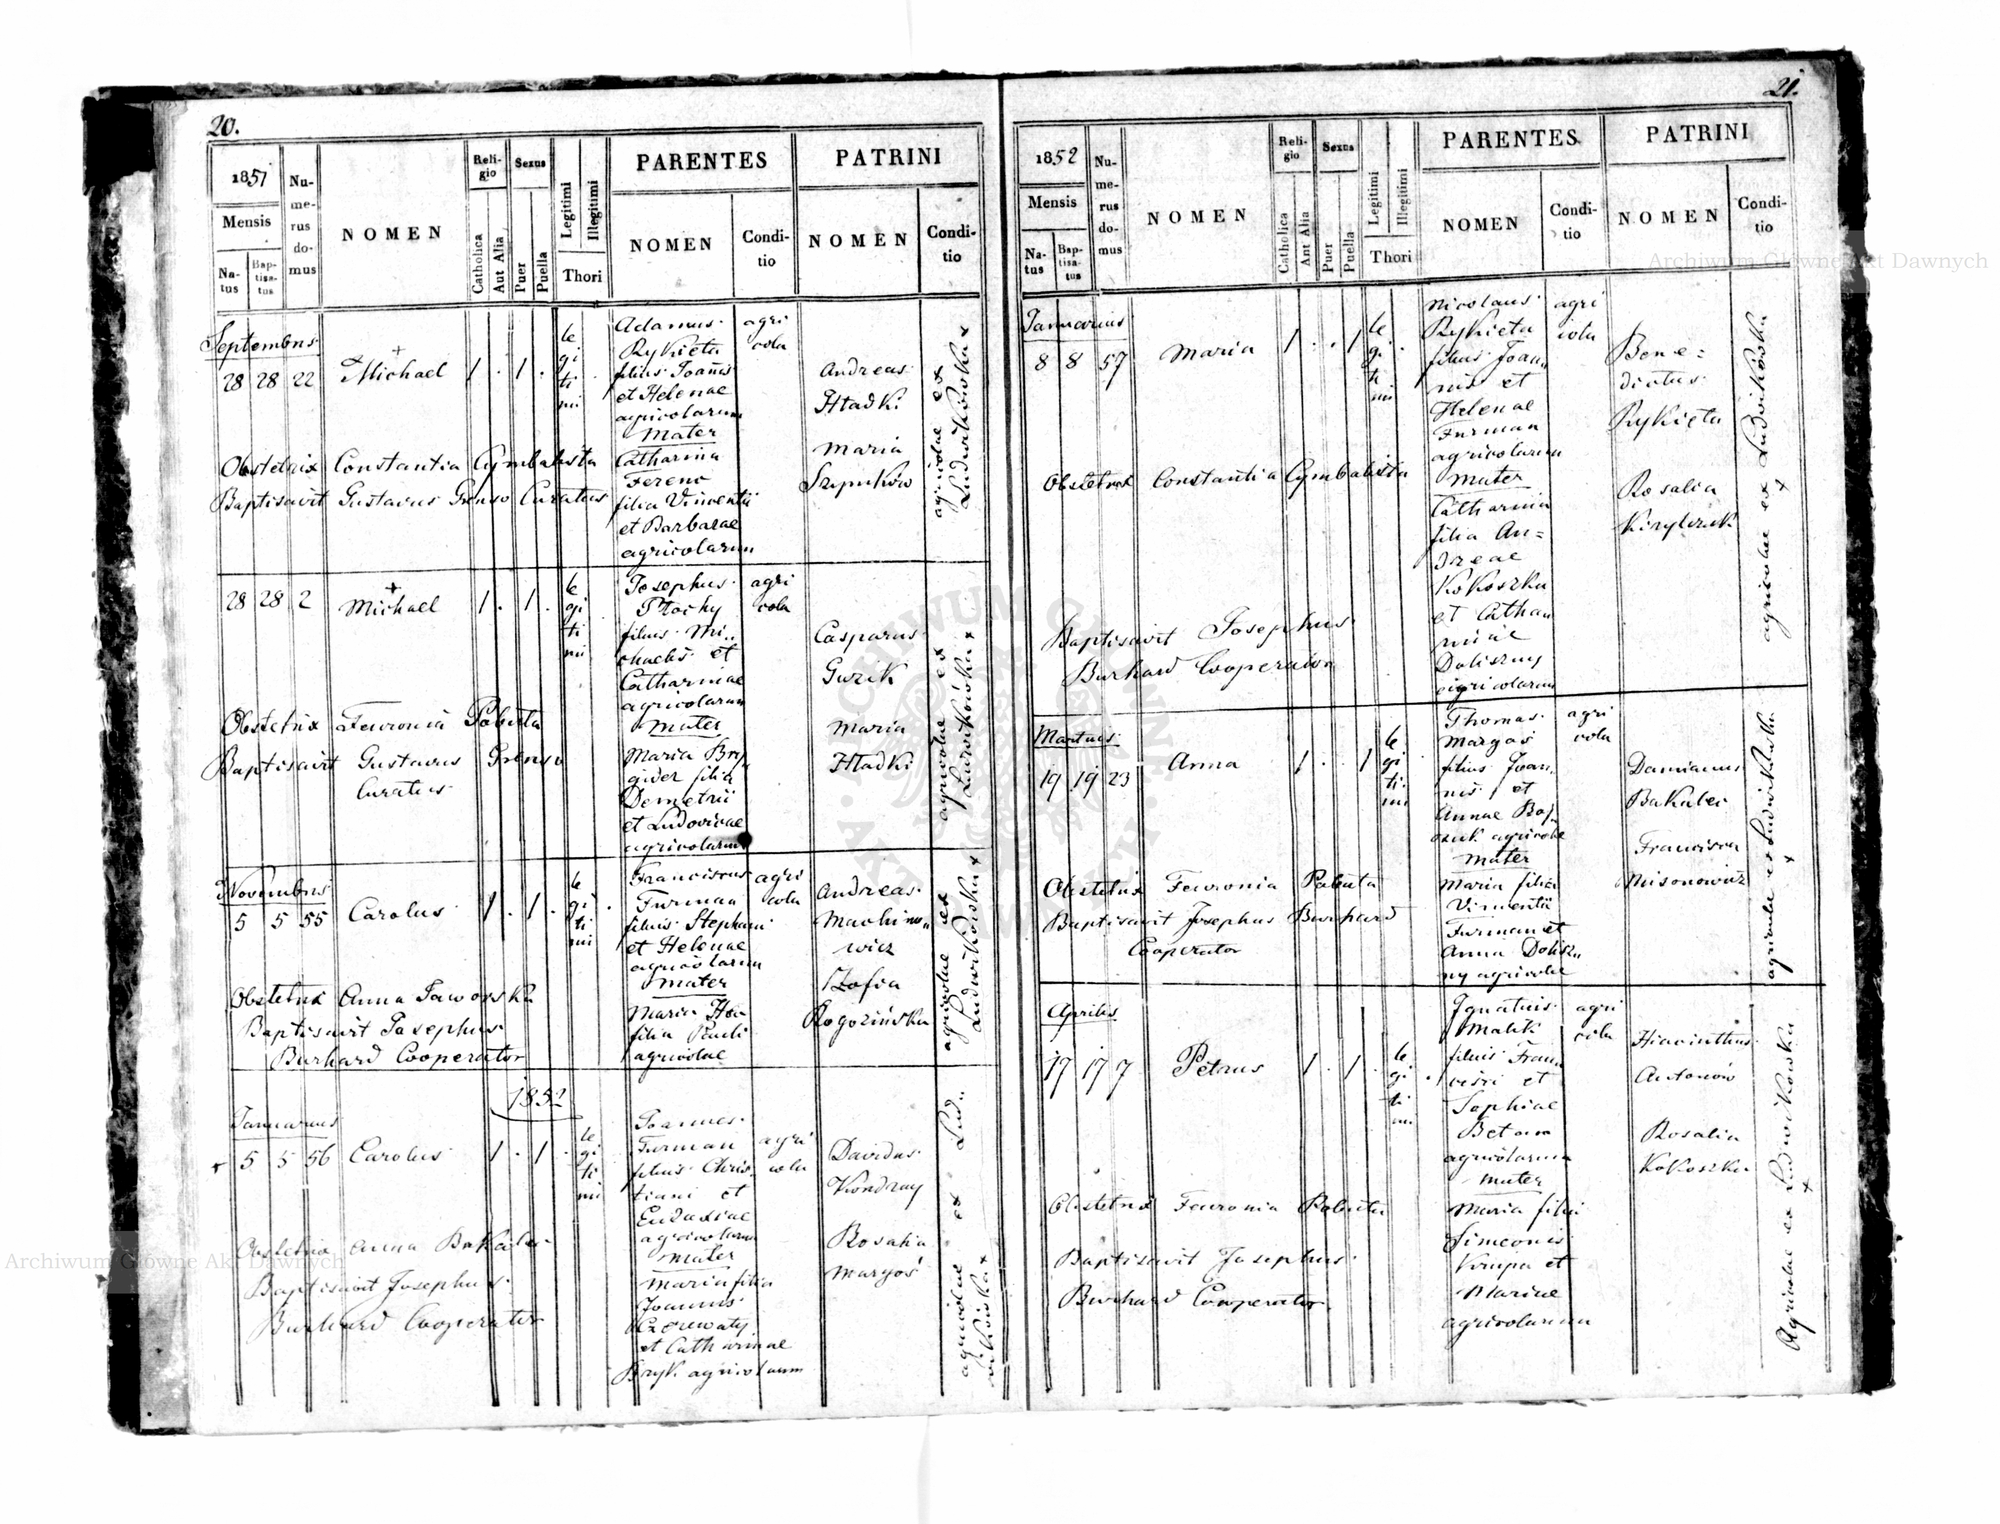 20.
1851
Mensis
Na-
tus
Bap-
tisa-
tus
Nu-
me-
rus
do-
mus
NOMEN
Reli-
gio
Catholica
Aut Alia
Sexus
Puer
Puella
Legitimi
Illegitimi
Thori
PARENTES
NOMEN
Condi-
tio
PATRINI
NOMEN
Condi-
tio
Septembris
28 28 22
+
Michael
1 . 1 .
le
gi
ti
mi
Adamus
Rykieta
filius Joannis
et Helenae
agricolarum
Mater
Catharina
Ferenc
filia Vincentii
et Barbarae
agricolarum
agri
cola
Andreas
Hladki
Maria
agricolae ex
Ludwikówka
Obstetrix Constantia Cymbalista
Baptisavit Gustavus Curatus
28 28 2
+
Michael
1 . 1 .
le
gi
ti
mi
Josephus
filius Mi-
chaelis et
Catharinae
agricolarum
Mater
Maria Bry-
gider filia
Demetrii
et Ludovicae
agricolarum
agri
cola
Casparus
Guzik
Maria
Hladki
agricolae ex
Ludwikówka
Obstetrix Fewronia Pobuta
Baptisavit Gustavus
Curatus
Novembris
5 5 55
Carolus
1 . 1 .
le
gi
ti
mi
Franciscus
Furman
filius Stephani
et Helenae
agricolarum
Mater
Maria
filia Pauli
agricolae
agri
cola
Andreas
Machino-
wicz
Zofia
Rogozińska
agricolae ex
Ludwikówka
Obstetrix Anna Jaworska
Baptisavit Josephus
Burhard Cooperator
1852
Januarius
5 5 56
Carolus
1 . 1 .
le
gi
ti
mi
Joannes
Furman
filius Chris-
tiani et
Eudoxiae
agricolarum
Mater
Maria filia
Joannis
et Catharinae
Bryk agricolarum
agri
cola
Davidus
Kondray
Rosalia
Margoś
agricolae ex Lud-
wikówka
Obstetrix Anna Bakalec
Baptisavit Josephus
Burhard Cooperator
21.
1852
Mensis
Na-
tus
Bap-
tisa-
tus
Nu-
me-
rus
do-
mus
NOMEN
Reli-
gio
Catholica
Aut Alia
Sexus
Puer
Puella
Legitimi
Illegitimi
Thori
PARENTES
NOMEN
Condi-
tio
PATRINI
NOMEN
Condi-
tio
Januarius
8 8 57
Maria
1 . . 1
le
gi
ti
mi
Nicolaus
Rykieta
filius Joan-
nis et
Helenae
Furman
agricolarum
Mater
Catharina
filia An=
dreae
Kokoszka
et Catha-
rinae
Doliszny
agricolarum
agri
cola
Bene=
dictus
Rykieta
Rosalia
agricolae ex Ludwikówka
Obstetrix Constantia Cymbalista
Baptisavit Josephus
Burhard Cooperator
Martius
19 19 23
Anna
1 . . 1
le
gi
ti
mi
Thomas
Margoś
filius Joan-
nis et
Annae
agricolae
Mater
Maria filia
Vincentii
Furman et
Anna Dolisz-
ny agricolae
agri
cola
Damianus
Bakalec
Francisca
Misonowicz
agricolae ex Ludwikówka
Obstetrix Fewronia Pobuta
Baptisavit Josephus Burhard
Cooperator
Aprilis
17 17 7
Petrus
1 . 1 .
le
gi
ti
mi
Ignatius
Malik
filius Fran-
cisci et
Sophiae
agricolarum
Mater
Maria filia
Simeonis
Krupa et
Mariae
agricolarum
agri
cola
Hiacinthus
Antonów
Rosalia
Kokoszka
Agricolae ex Ludwikówka
Obstetrix Fewronia Pobuta
Baptisavit Josephus
Burhard Cooperator
ARCHIWUM GŁÓWNE AKT DAWNYCH
Archiwum Główne Akt Dawnych
Archiwum Główne Akt Dawnych